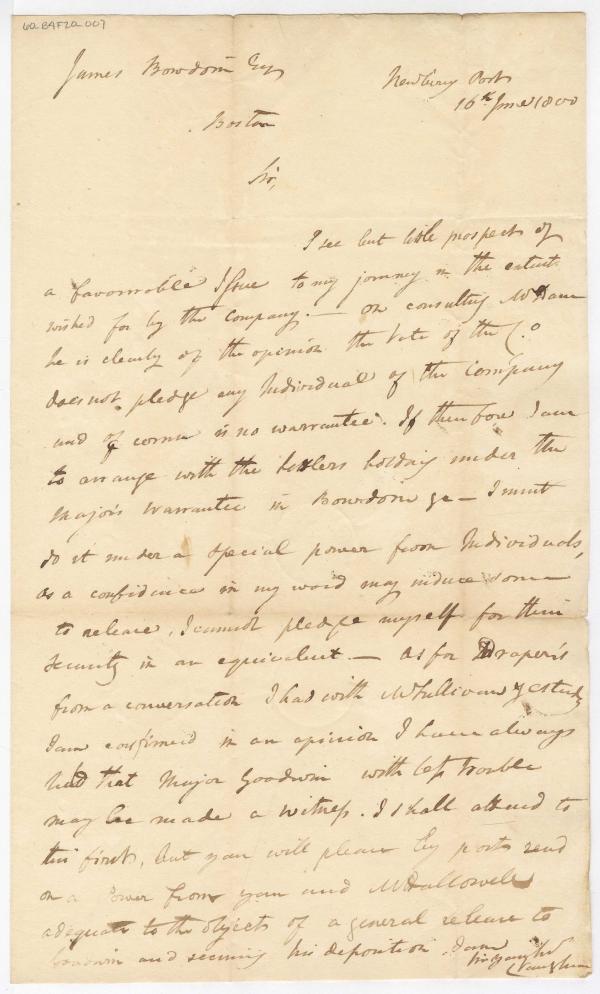 6a.B4F2a.007
James Bowdoin Esqr
Newbury Port
16th June 1800
Boston
Sir,
I see but little prospect of
a favourable Issue to my journey in the extent
wished for by the Company. — on consulting Mr Dane
he is clearly of the opinion the Vote of the Co
does not pledge any Individual of the Company
and of course is no warrantee. If therefore I am
to arrange with the Settlers holding under the
Major's Warrantee in Bowdoin — I must
do it under a special power from Individuals,
as a confidence in my word may induce some
to release, I cannot pledge myself for their
security in an equivalent — as for Draper's
from a conversation I had with Mr Sullivan yesterday
I am confirmed in an opinion I have always
had that Major Goodwin with less trouble
may be made a witness. I shall attend to
this first, but you will please by post send
on a Power from you and Mr Hallowell
adequate to the objects of a general release to
Goodwin and securing his deposition. I am
Sir yours
C Vaughan